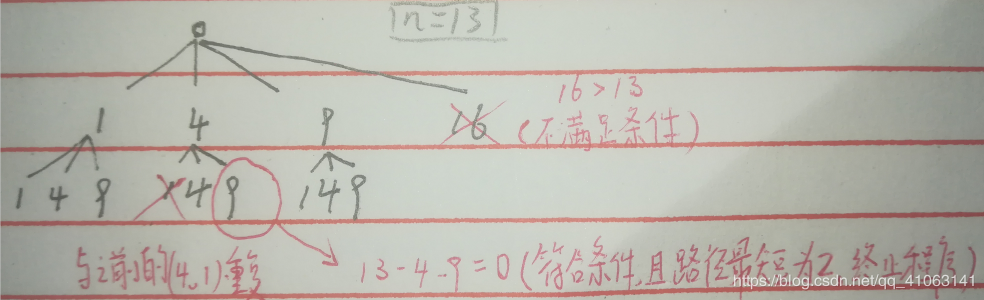 n=13
0
1 4 9 16 16>13
(不满足条件)
1 4 9 1 4 9 1 4 9
与之前的(4,1)重复
13-4-9=0(符合条件,且路径最短为2,终止程序)
https://blog.csdn.net/qq_41063141